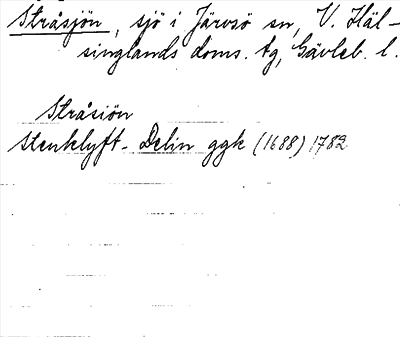 Stråsjön, sjö i Järvsö sn, V. Häl-
singlands doms. tg, Gävleb. l.
Stråsiön
Stenklyft- Delin ggk (1688) 1782